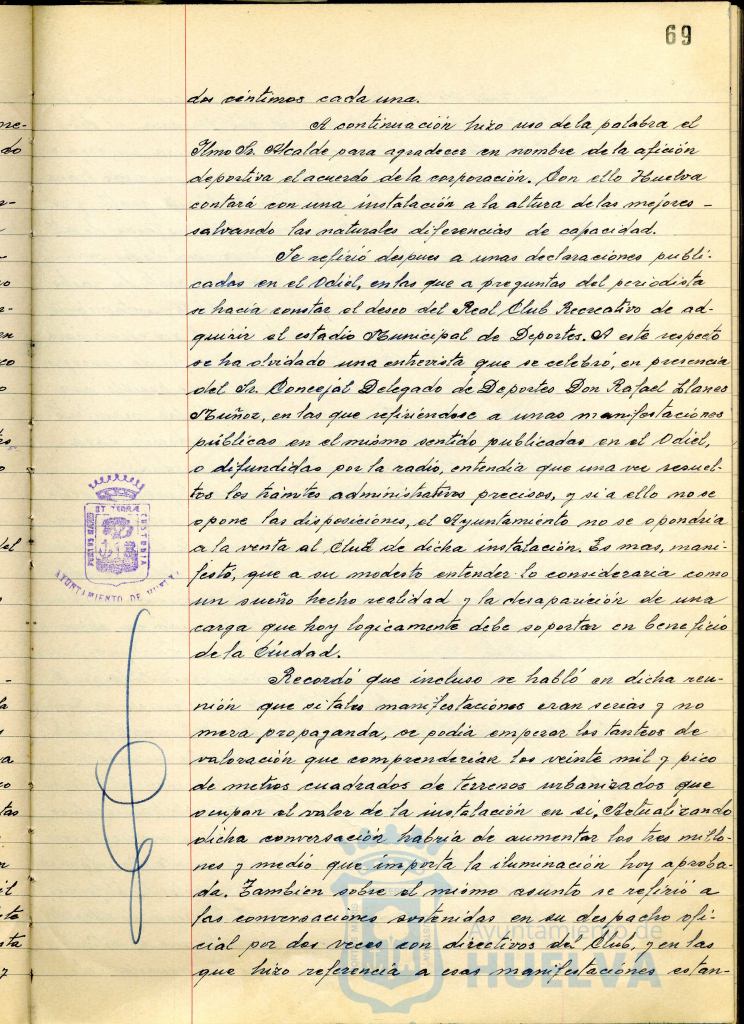 69
dos céntimos cada una.
A continuación hizo uso de la palabra el
Ilmo Sr. Alcalde para agradecer en nombre de la afición
deportiva el acuerdo de la corporación. Con ello Huelva
contará con una instalación a la altura de las mejores -
salvando las naturales diferencias de capacidad.
Se refirió despues a unas declaraciones publi-
cadas en el Odiel, en las que a preguntas del periodista
se hacía constar el deseo del Real Club Recreativo de ad-
quirir el estadio Municipal de Deportes. A este respecto
se ha olvidado una entrevista que se celebró, en presencia
del Sr. Concejal Delegado de Deportes Don Rafael Llanes
Muñoz, en las que refiriéndose a unas manifestaciones
públicas en el mismo sentido publicadas en el Odiel,
o difundidas por la radio, entendía que una vez resuel-
tos los trámites administrativos precisos, y si a ello no se
opone las disposiciones, el Ayuntamiento no se opondría
a la venta al Club de dicha instalación. Es mas, mani-
festó, que a su modesto entender lo consideraría como
un sueño hecho realidad y la desaparición de una
carga que hoy logicamente debe soportar en beneficio
de la Ciudad.
Recordó que incluso se habló en dicha reu-
nión que si tales manifestaciones eran serias y no
mera propaganda, se podía empezar los tanteos de
valoración que comprenderían los veinte mil y pico
de metros cuadrados de terrenos urbanizados que
ocupan el valor de la instalación en si. Actualizando
dicha conversación habría de aumentar los tres millo-
nes y medio que importa la iluminación hoy aproba-
da. Tambien sobre el mismo asunto se refirió a
las conversaciones sostenidas en su despacho ofi-
cial por dos veces con directivos del Club, y en las
que hizo referencia a esas manifestaciones estan-
PORTUS MARIS ET TERRAE CUSTODIA
AYUNTAMIENTO DE HUELVA
Ayuntamiento de
HUELVA